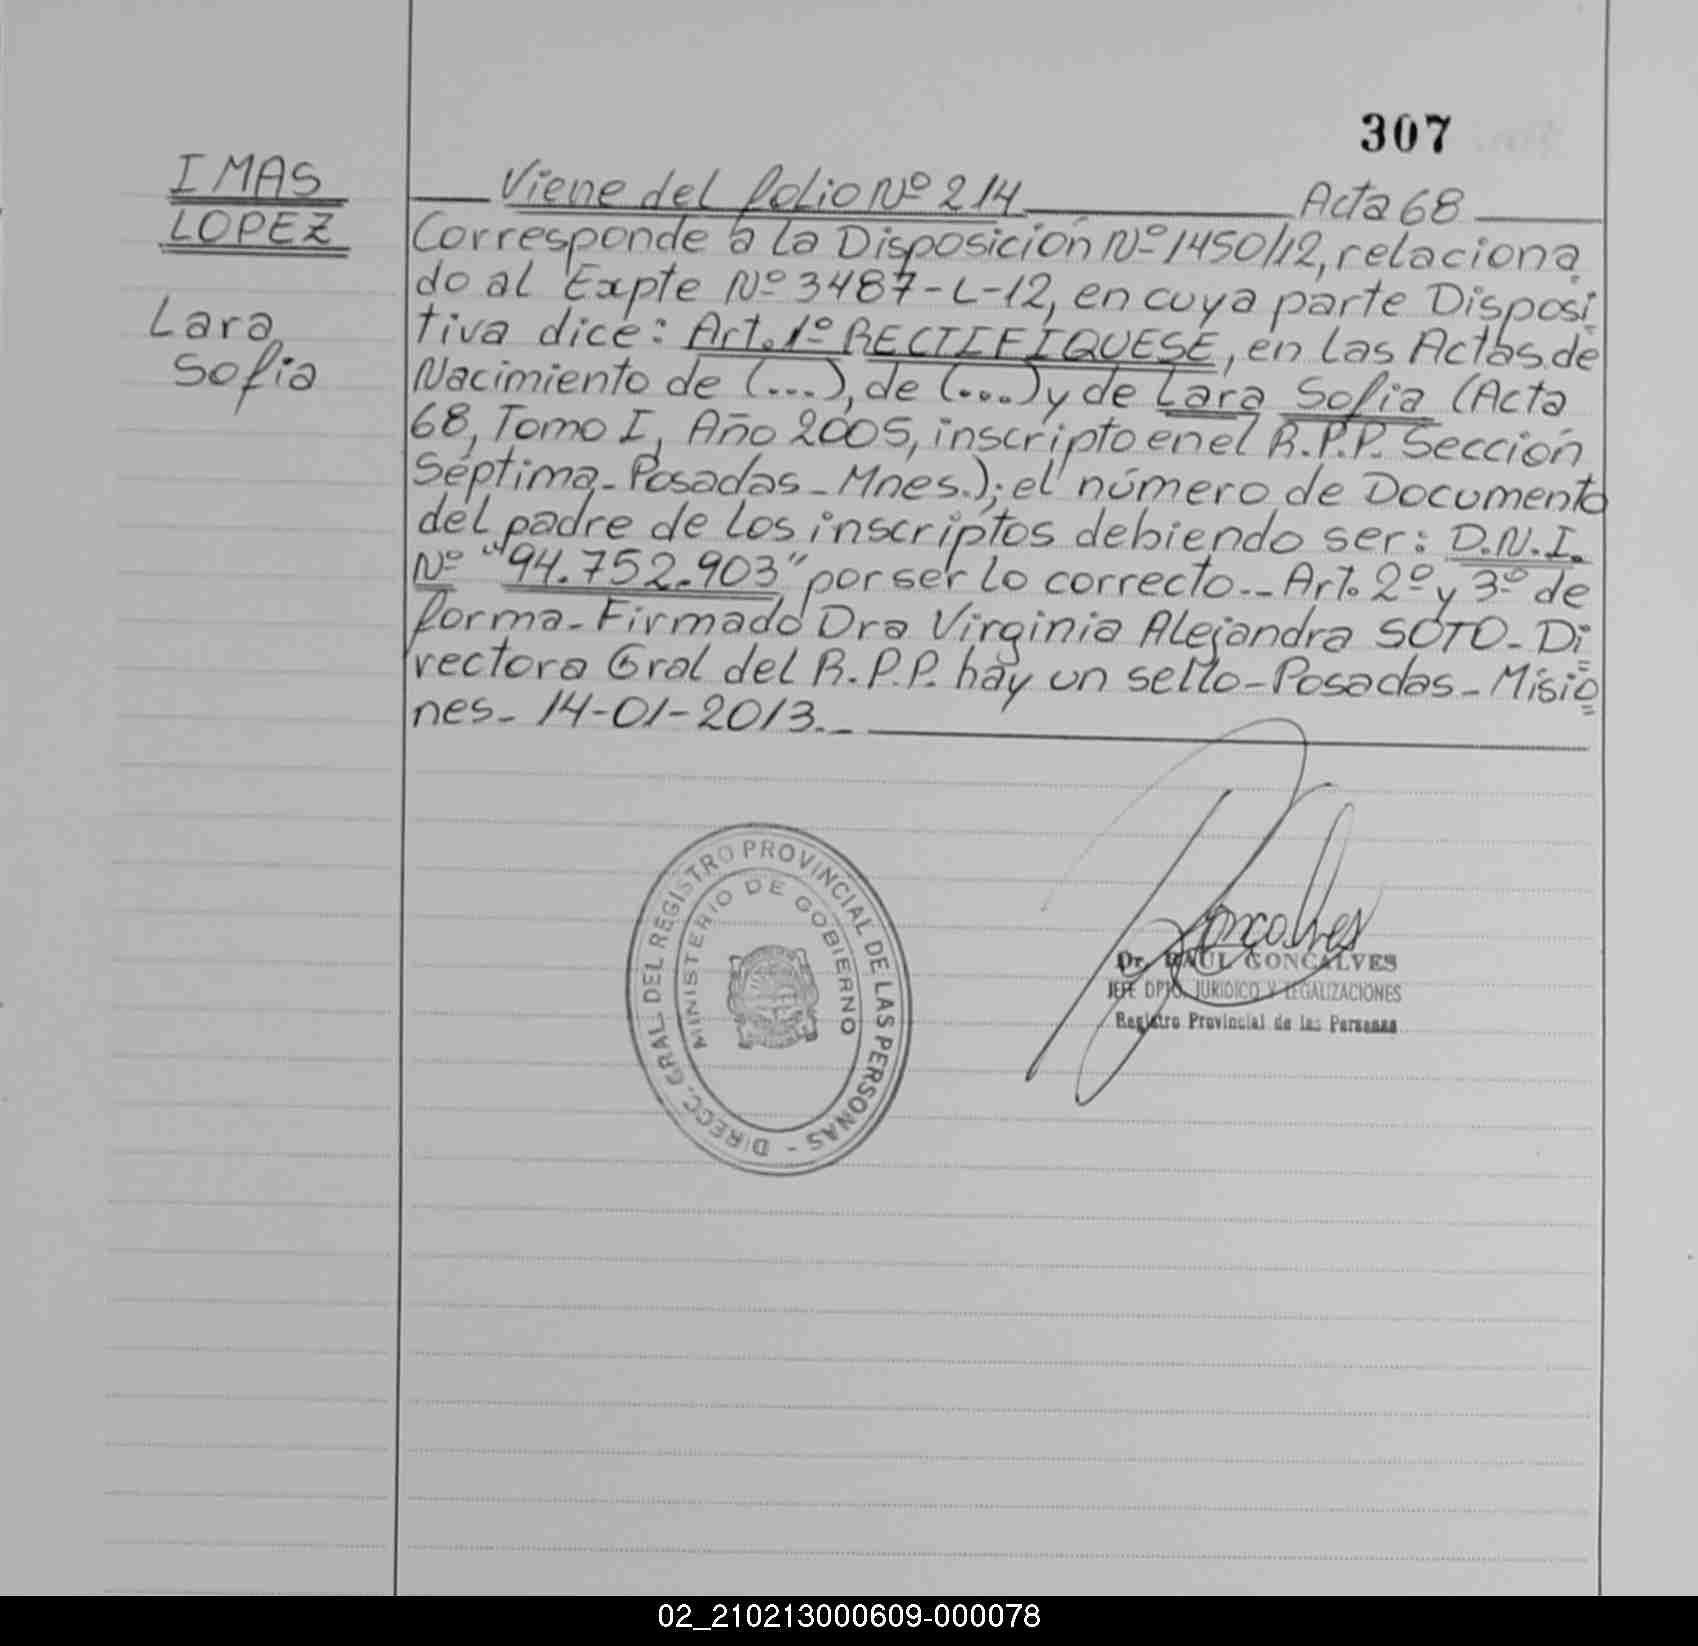 307
IMAS
LOPEZ
Lara
Sofia
Viene del folio Nº 214 Acta 68
Corresponde a la Disposición Nº 1450/12, relaciona
do al Expte Nº 3487-L-12, en cuya parte Disposi
tiva dice: Art. 1º RECTIFIQUESE, en las Actas de
Nacimiento de (...), de (...) y de Lara Sofia (Acta
68, Tomo I, Año 2005, inscripto en el R.P.P. Sección
Séptima-Posadas-Mnes.); el número de Documento
del padre de los inscriptos debiendo ser: D.N.I.
Nº "94.752.903" por ser lo correcto.-- Art. 2º y 3º de
forma-Firmado Dra Virginia Alejandra SOTO-Di
rectora Gral del R.P.P. hay un sello-Posadas-Misio
nes- 14-01-2013.-
DIRECC. GRAL. DEL REGISTRO PROVINCIAL DE LAS PERSONAS -
MINISTERIO DE GOBIERNO
Goncalves
Dr. RAUL GONCALVES
JEFE DPTO. JURIDICO Y LEGALIZACIONES
Registro Provincial de las Personas
02_210213000609-000078